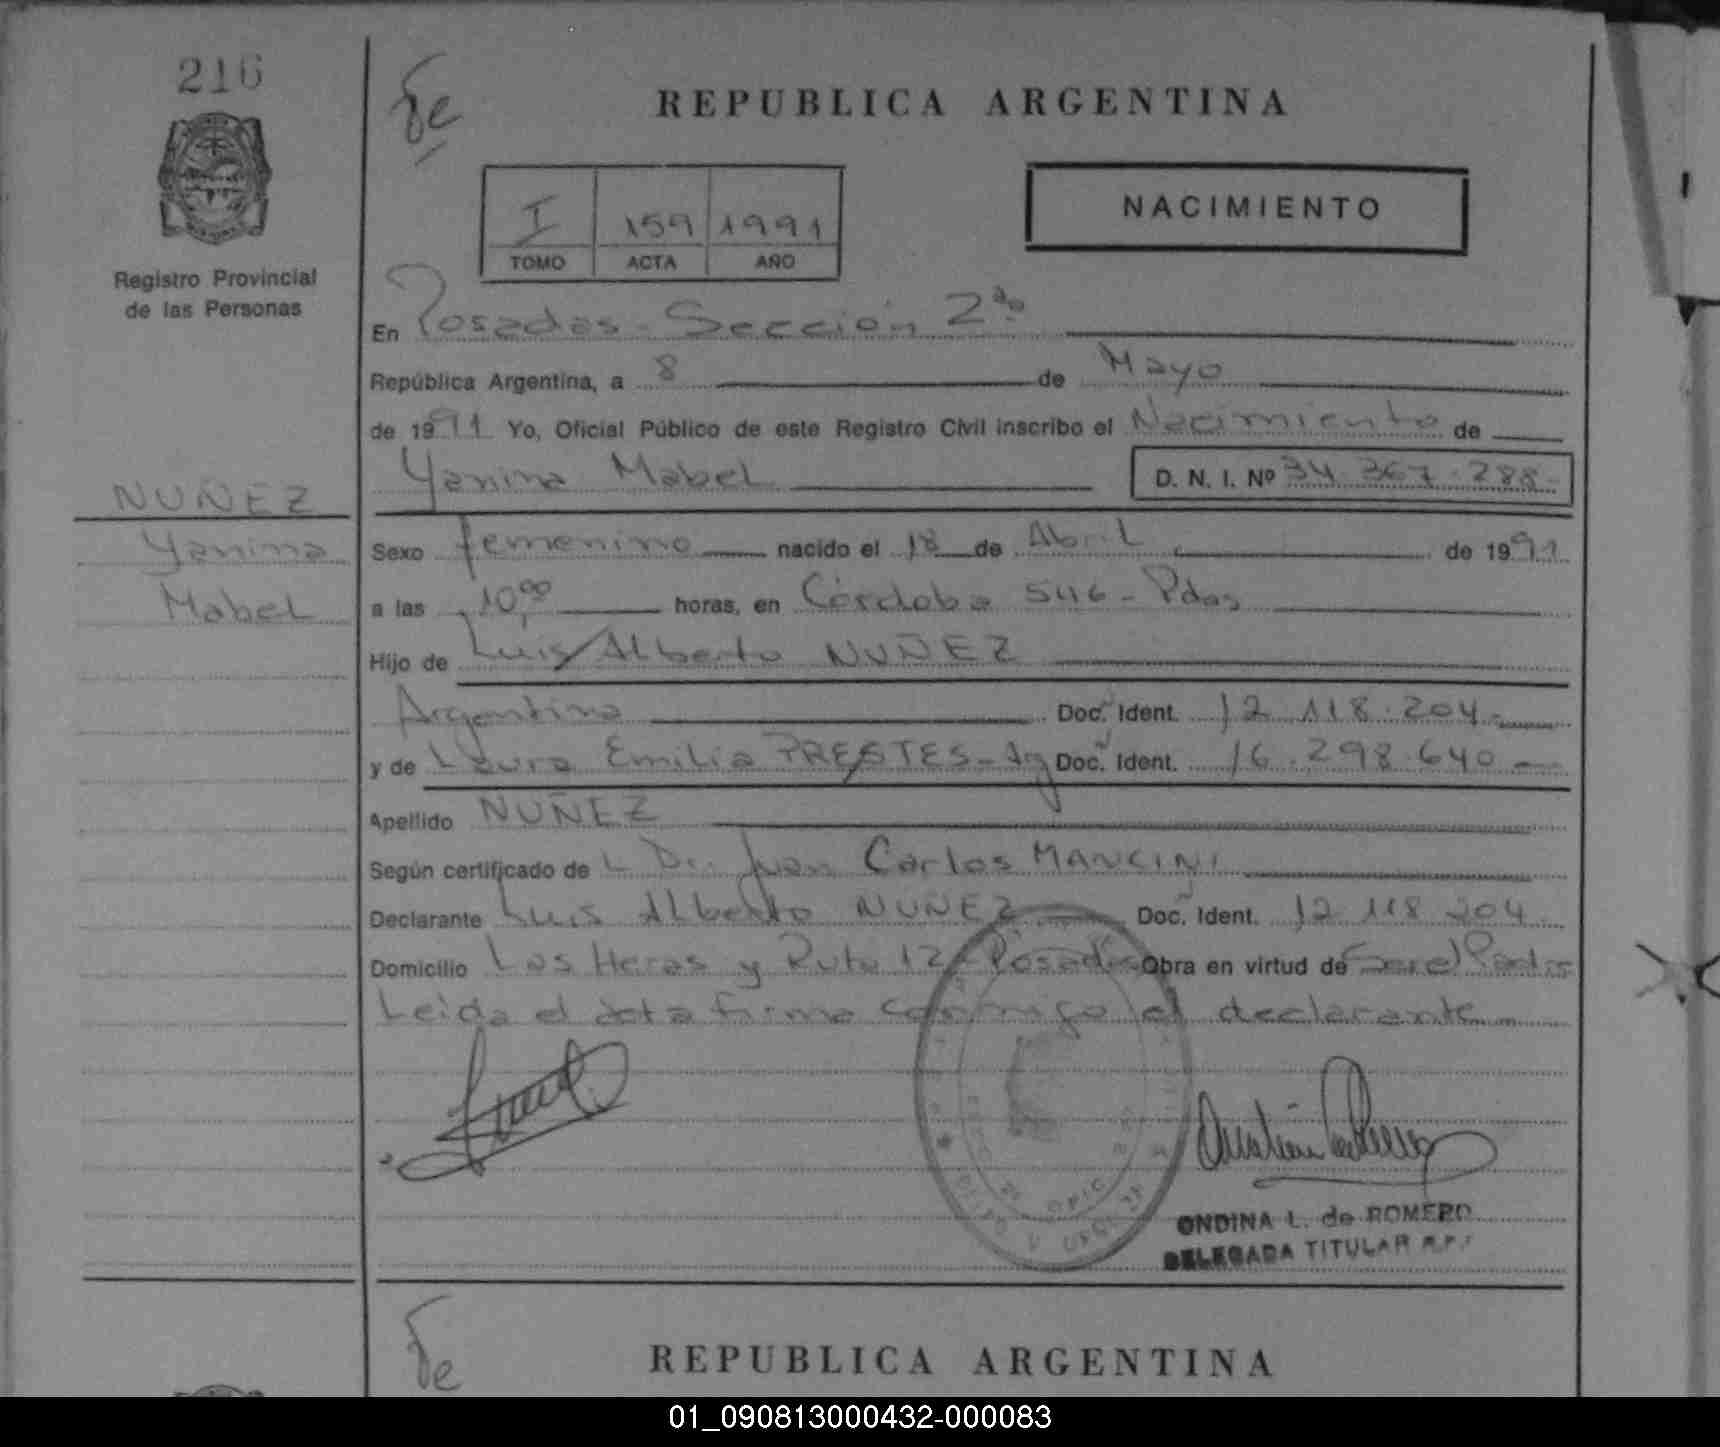 216
Registro Provincial
de las Personas
NUÑEZ
Yanina
Mabel
Fe
REPUBLICA ARGENTINA
I 159 1991
TOMO ACTA AÑO
NACIMIENTO
En Posadas - Sección 2da
República Argentina, a 8 de Mayo
de 1991 Yo, Oficial Público de este Registro Civil inscribo el Nacimiento de
Yanina Mabel D. N. I. Nº 34.367.288
Sexo femenino nacido el 18 de Abril de 1991
a las 10,00 horas, en Córdoba 546 - Pdas
Hijo de Luis Alberto NUÑEZ
Argentino Doc. Ident. 12.118.204
y de Laura Emilia PRESTES - Arg Doc. Ident. 16.298.640
Apellido NUÑEZ
Según certificado del Dr. Juan Carlos MANCINI
Declarante Luis Alberto NUÑEZ Doc. Ident. 12 118 204
Domicilio Las Heras y Ruta 12 - Posadas Obra en virtud de Ser el Padre
Leida el acta firma conmigo el declarante
ONDINA L. de ROMERO
DELEGADA TITULAR R.P.
Fe
REPUBLICA ARGENTINA
01_090813000432-000083